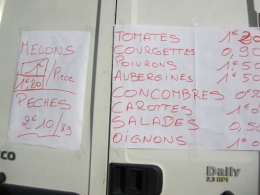 MELONS
1€
1€20/Piece
PECHES
2€10/Kg
TOMATES 1€20
COURGETTES 0,90
POIVRONS 1€50
AUBERGINES 1€50
CONCOMBRES
CAROTTES 1€
SALADES 0,50
OIGNONS 1€
Daily